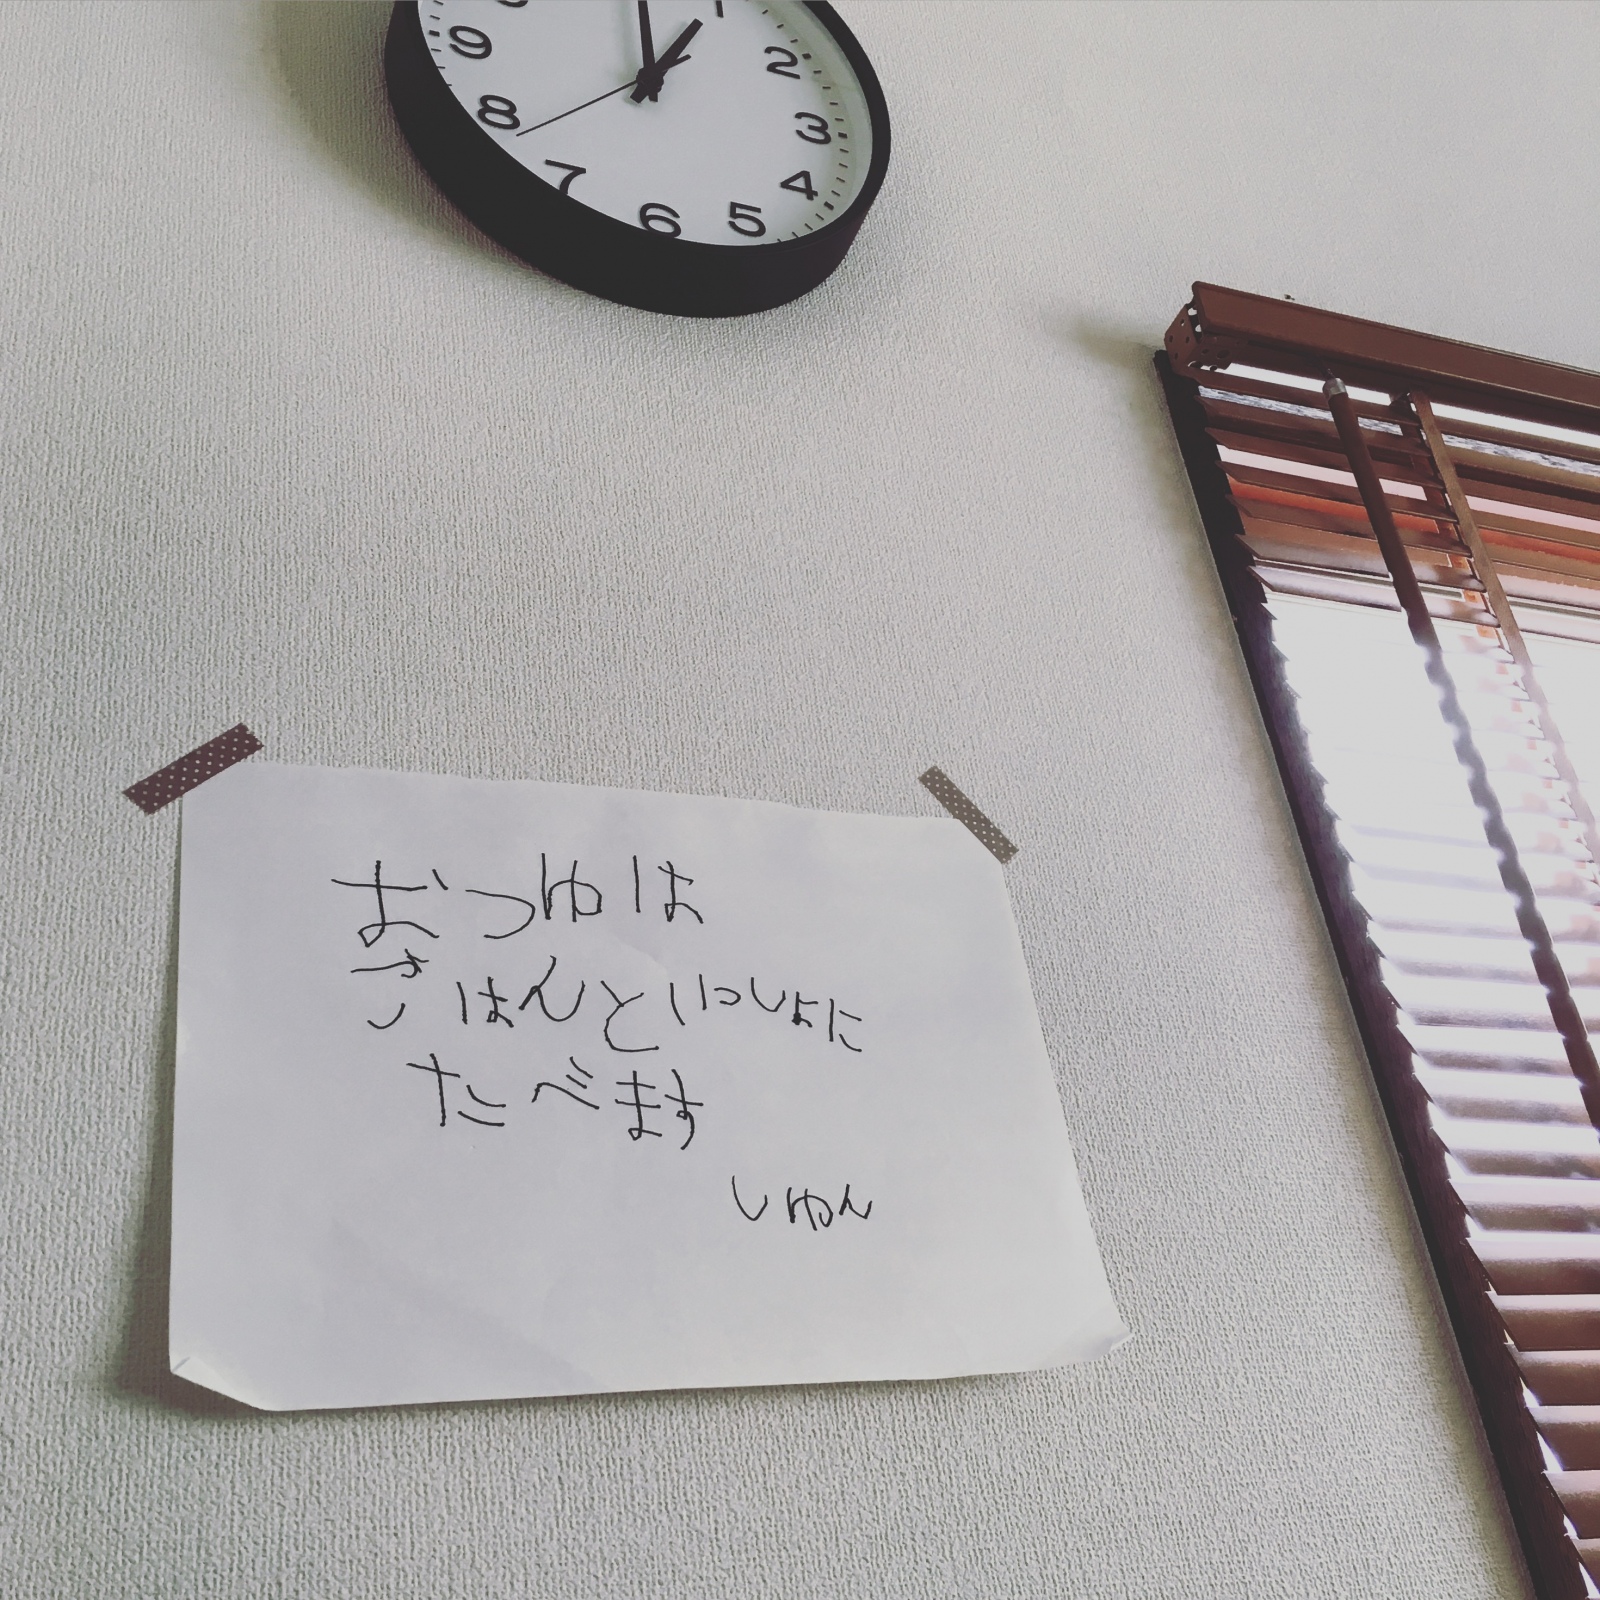 9
8
7
6
5
4
3
2
1
おつゆは
ごはんといっしょに
たべます
しゅん